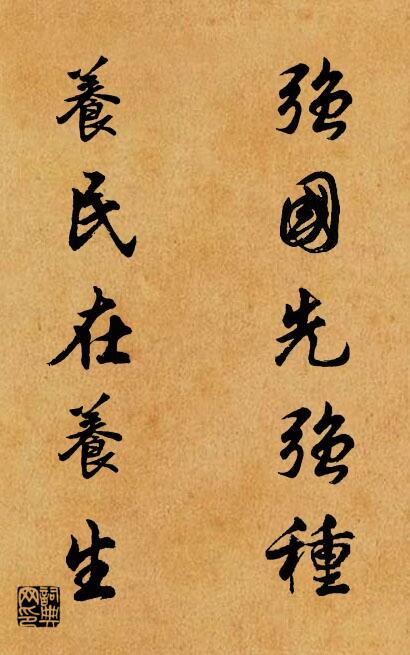 強國先強種
養民在養生
詞典網印